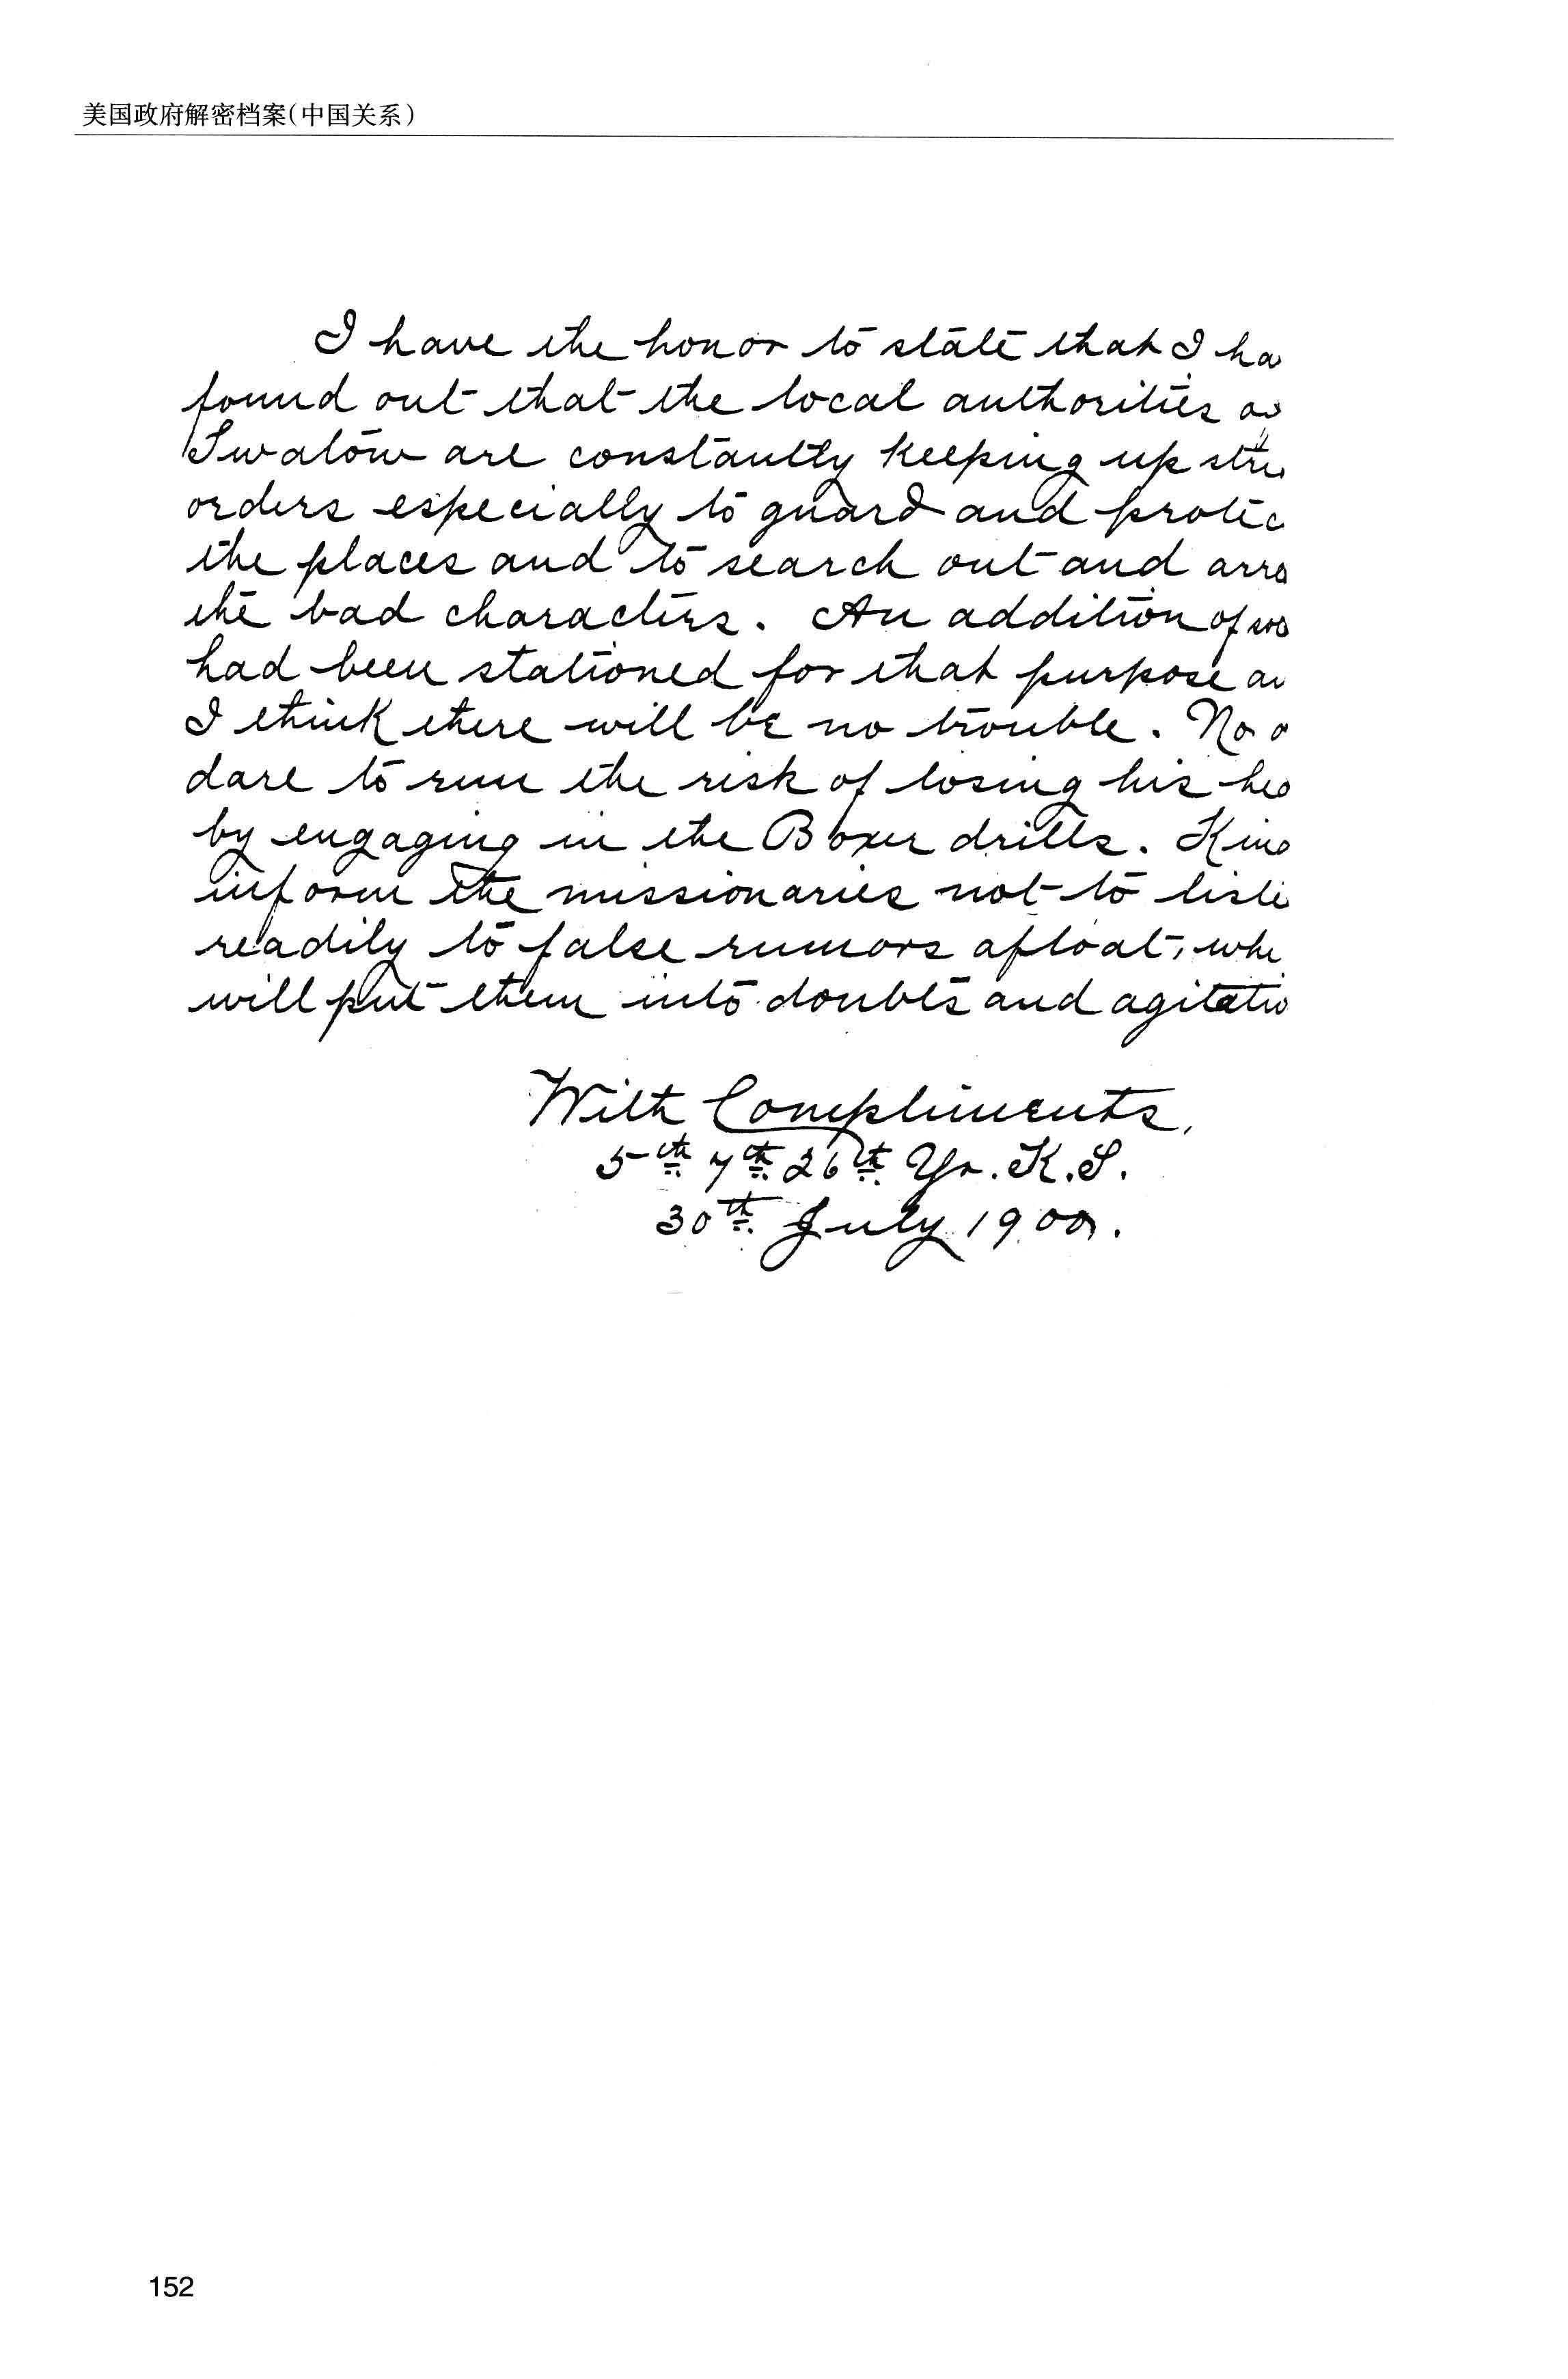 美国政府解密档案(中国关系)
I have the honor to state that I ha
found out that the local authorities
Swatow are constantly keeping up
orders especially to guard and protec
the places and to search out and arre
the bad characters. An addition of
had been stationed for that purpose an
I think there will be no trouble. No o
dare to run the risk of losing his hea
by engaging in the Boxer drills. Kind
inform the missionaries not to liste
readily to false rumors afloat, whi
will put them into doubts and agitatio
With Compliments,
5th 7th 26th Yr. K.S.
30th July 1900.
152